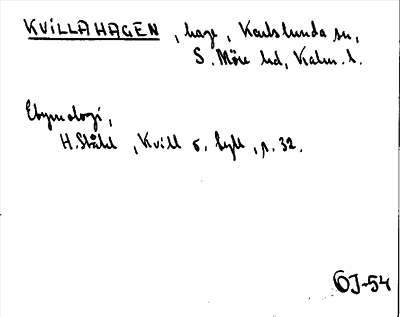 KVILLAHAGEN, hage, Karlslunda sn,
S. Möre hd, Kalm. l.
Etymologi,
H. Ståhl, Kvill o. tyll, s. 32.
ÖJ-54